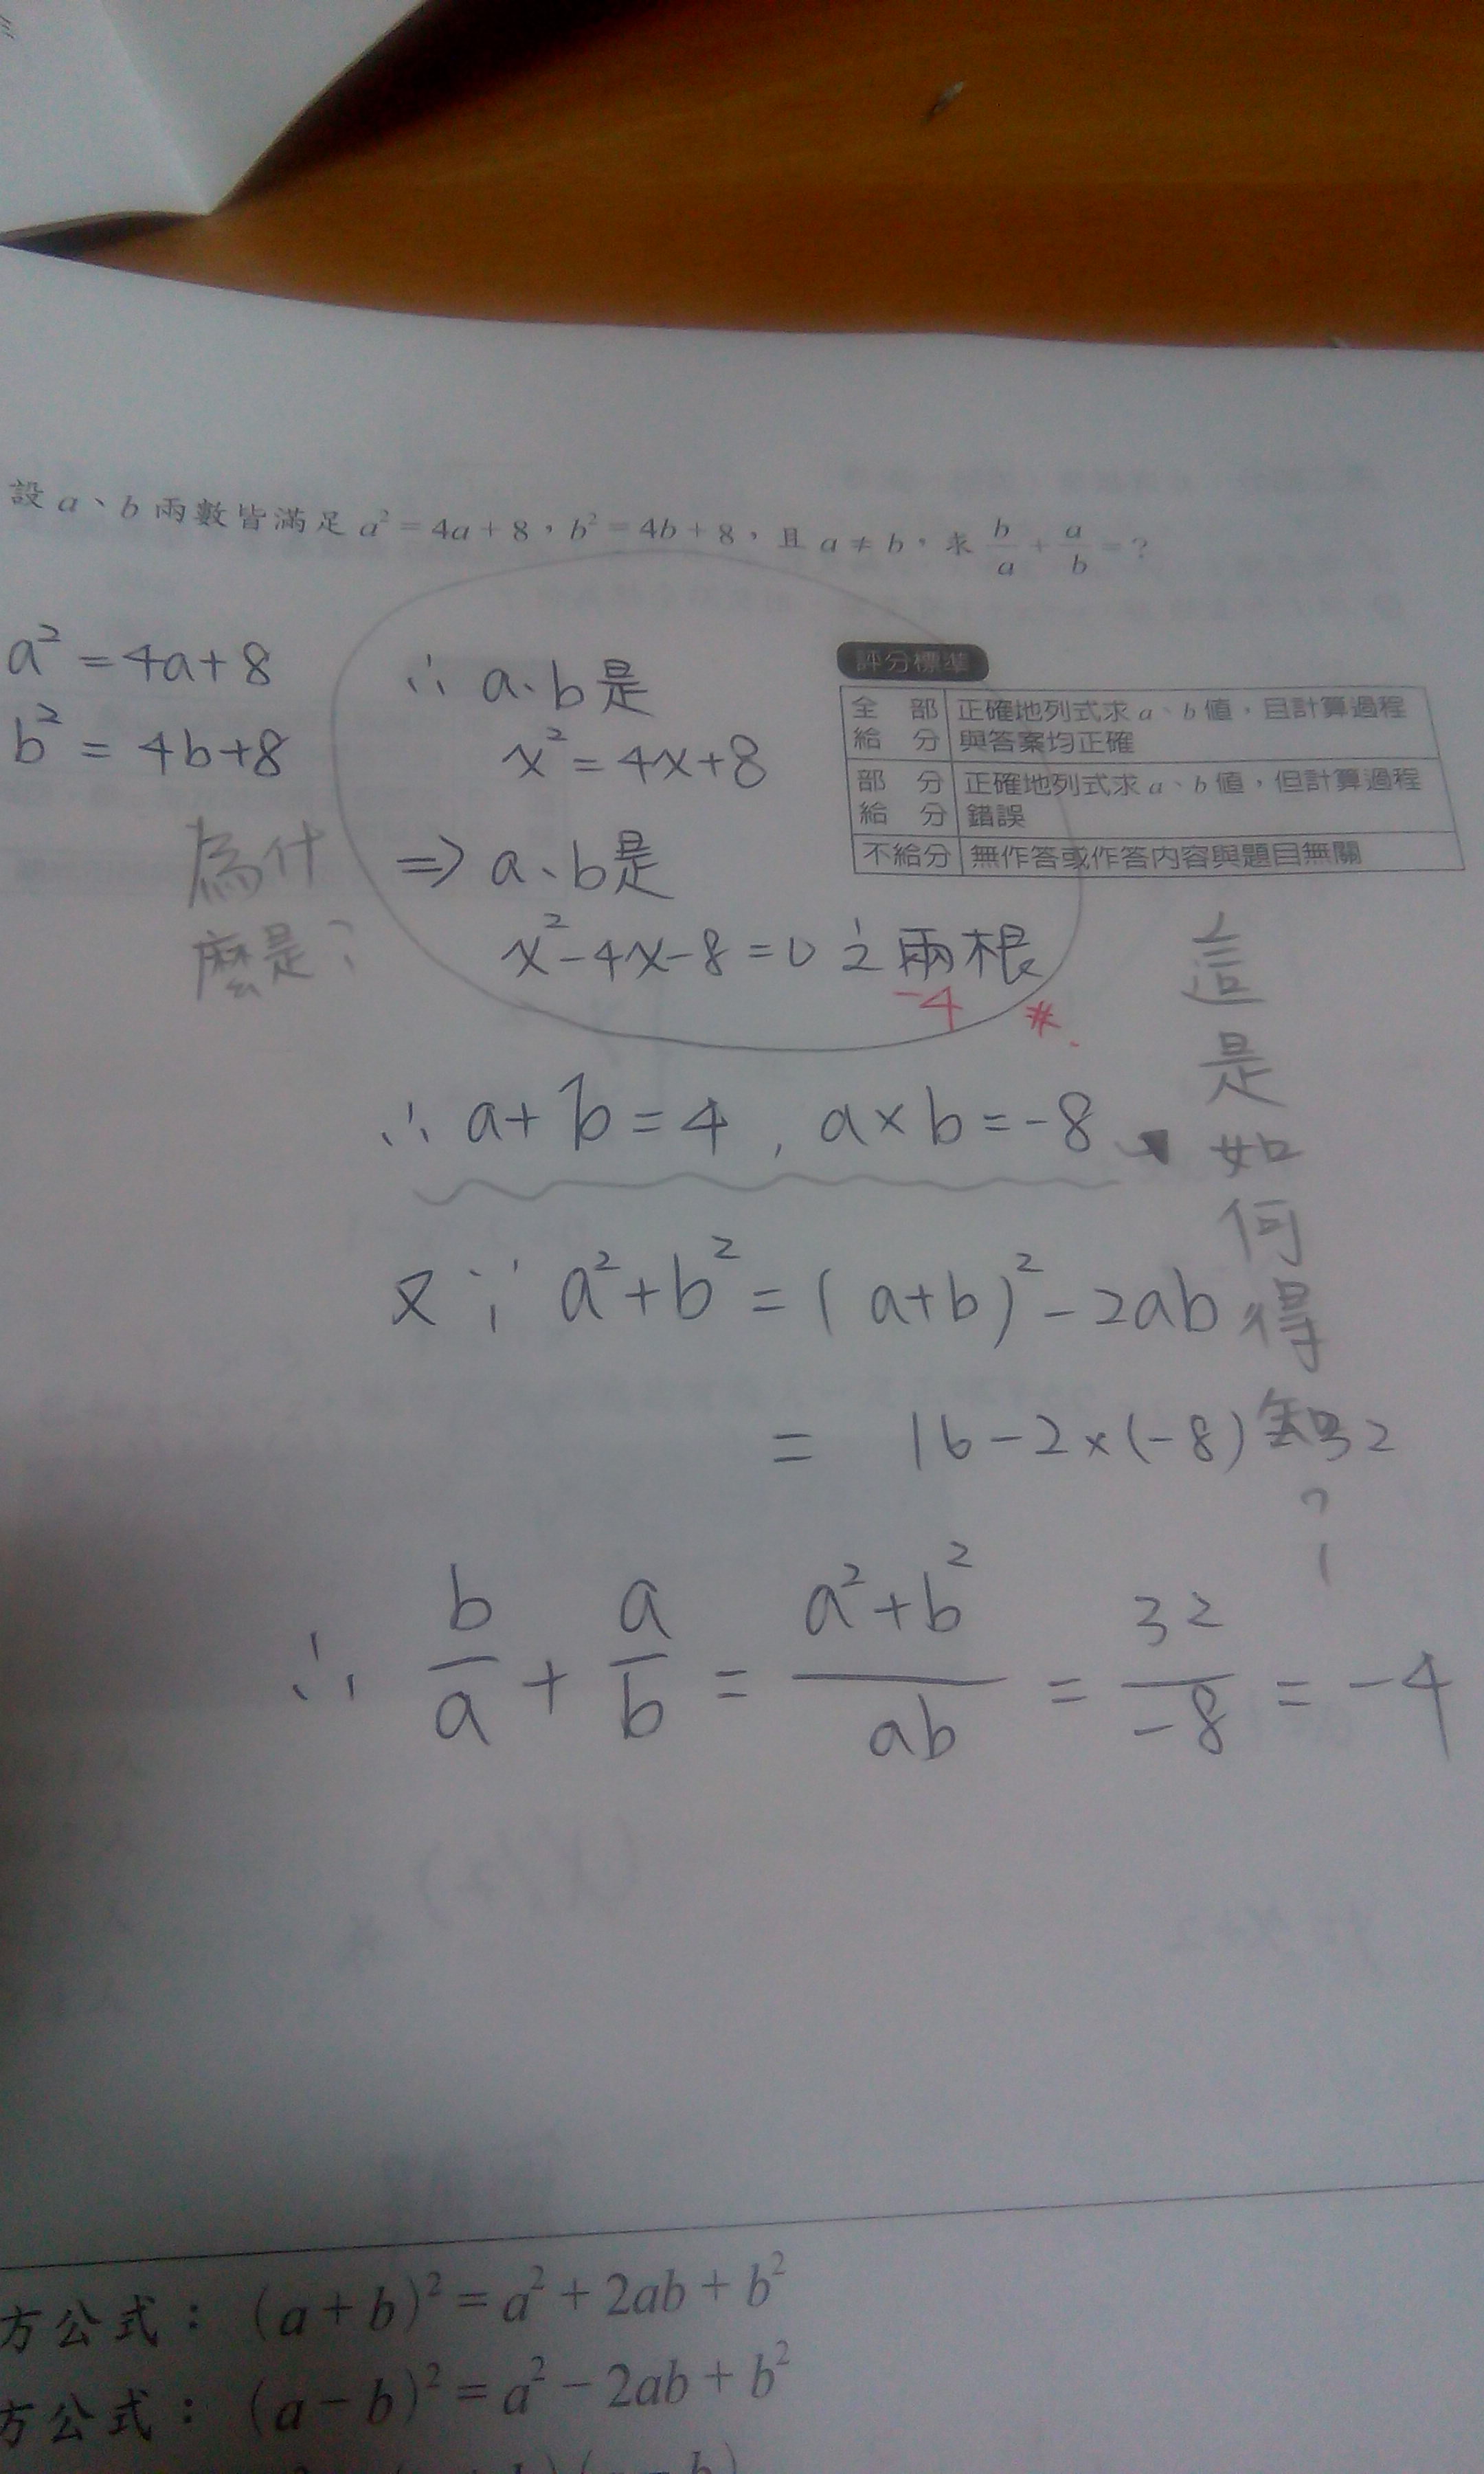 設 a、b 兩數皆滿足 a² = 4a + 8，b² = 4b + 8，且 a ≠ b，求 b/a + a/b = ？
a² = 4a+8
b² = 4b+8
為什
麼是？
∴ a、b是
x² = 4x+8
⇒ a、b是
x²-4x-8=0 之兩根
-4 #.
評分標準
全部給分 正確地列式求 a、b 值，且計算過程
與答案均正確
部分給分 正確地列式求 a、b 值，但計算過程
錯誤
不給分 無作答或作答內容與題目無關
∴ a+b=4 , a×b=-8
這是如何得知?
又∵ a²+b² = (a+b)²-2ab
= 16-2×(-8) 32
∴ b/a + a/b = a²+b²/ab = 32/-8 = -4
方公式：(a+b)² = a² + 2ab + b²
方公式：(a-b)² = a² - 2ab + b²